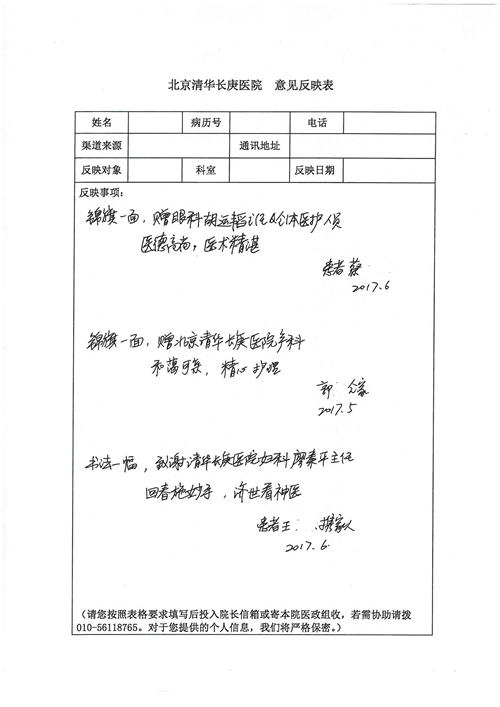 北京清华长庚医院 意见反映表
姓名 病历号 电话
渠道来源 通讯地址
反映对象 科室 反映日期
反映事项：
锦旗一面，赠眼科胡运韬主任及全体医护人员
医德高尚，医术精湛
患者 蔡
2017.6
锦旗一面，赠北京清华长庚医院产科
和蔼可亲，精心护理
郭： 全家
2017.5
书法一幅，致谢清华长庚医院妇科廖秦平主任
回春施妙手，济世看神医
患者王： 携家人
2017.6.
（请您按照表格要求填写后投入院长信箱或寄本院医政组收，若需协助请拨
010-56118765。对于您提供的个人信息，我们将严格保密。）